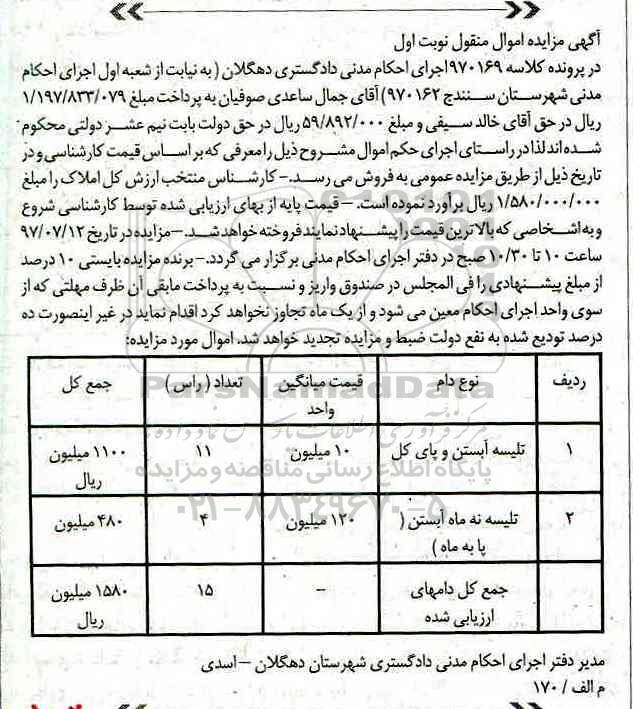 آگهی مزایده اموال منقول نوبت اول
در پرونده کلاسه ۹۷۰۱۶۹اجرای احکام مدنی دادگستری دهگلان ( به نیابت از شعبه اول اجرای احکام
مدنی شهرستان سنندج ۹۷۰۱۶۲) آقای جمال ساعدی صوفیان به پرداخت مبلغ ۱/۱۹۷/۸۳۳/۰۷۹
ریال در حق آقای خالد سیفی و مبلغ ۵۹/۸۹۲/۰۰۰ ریال در حق دولت بابت نیم عشر دولتی محکوم
شده اند لذا در راستای اجرای حکم اموال مشروح ذیل را معرفی که بر اساس قیمت کارشناسی و در
تاریخ ذیل از طریق مزایده عمومی به فروش می رسد.- کارشناس منتخب ارزش کل املاک را مبلغ
۱/۵۸۰/۰۰۰/۰۰۰ ریال برآورد نموده است. – قیمت پایه از بهای ارزیابی شده توسط کارشناسی شروع
و به اشخاصی که بالاترین قیمت را پیشنهاد نمایند فروخته خواهد شد.-مزایده در تاریخ ۹۷/۰۷/۱۲
ساعت ۱۰ تا ۱۰/۳۰ صبح در دفتر اجرای احکام مدنی برگزار می گردد.- برنده مزایده بایستی ۱۰ درصد
از مبلغ پیشنهادی را فی المجلس در صندوق واریز و نسبت به پرداخت مابقی آن ظرف مهلتی که از
سوی واحد اجرای احکام معین می شود و از یک ماه تجاوز نخواهد کرد اقدام نماید در غیر اینصورت ده
درصد تودیع شده به نفع دولت ضبط و مزایده تجدید خواهد شد. اموال مورد مزایده:
ردیف نوع دام قیمت میانگین واحد تعداد ( راس ) جمع کل
۱ تلیسه آبستن و پای کل ۱۰ میلیون ۱۱ ۱۱۰۰ میلیون ریال
۲ تلیسه نه ماه آبستن ( پا به ماه ) ۱۲۰ میلیون ۴ ۴۸۰ میلیون
جمع کل دامهای ارزیابی شده – ۱۵ ۱۵۸۰ میلیون ریال
مدیر دفتر اجرای احکام مدنی دادگستری شهرستان دهگلان – اسدی
م الف / ۱۷۰
ParsNamadData
مرکز فرآوری اطلاعات پارس نماد داده
پایگاه اطلاع رسانی مناقصه و مزایده
۰۲۱-۸۸۳۴۹۶۷۰-۵